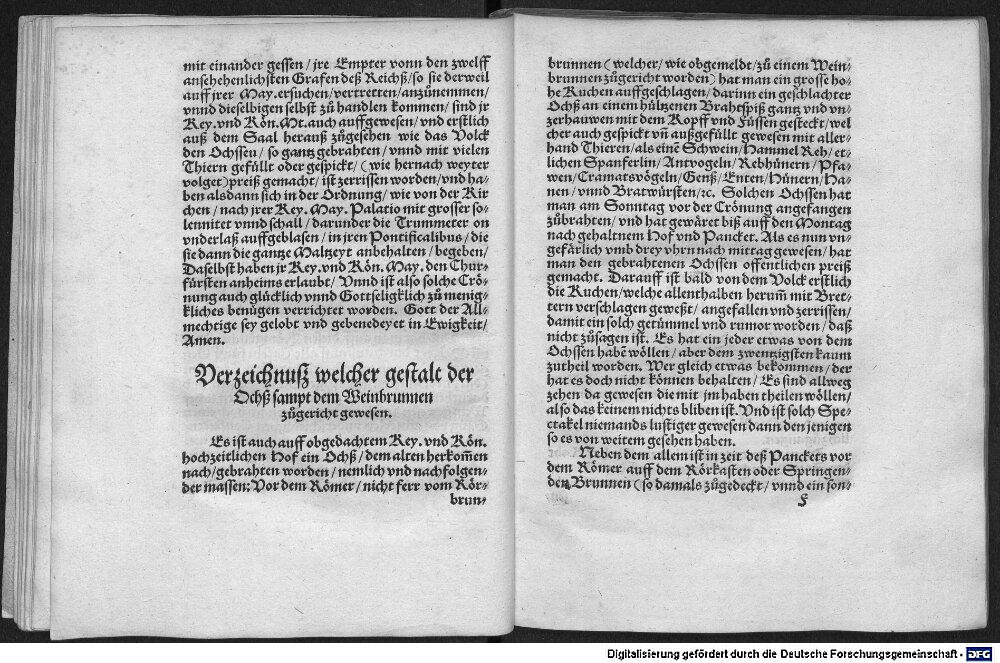 mit einander gessen / jre Empter vonn den zwelff
ansehehenlichsten Grafen deß Reichß / so sie derweil
auff jrer May. ersuchen / vertretten / anzůnemmen /
vnnd dieselbigen selbst zů handlen kommen / sind jr
Key. vnd Kön. Mt. auch auffgewesen / vnd erstlich
auß dem Saal herauß zůgesehen wie das Volck
den Ochssen / so gantz gebrahten / vnnd mit vielen
Thiern gefüllt oder gespickt / (wie hernach weyter
volget) preiß gemacht / ist zerrissen worden / vnd ha-
ben alsdann sich in der Ordnung / wie von der Kir
chen / nach jrer Key. May. Palatio mit grosser so-
lennitet vnnd schall / darunder die Trummeter on
vnderlaß auffgeblasen / in jren Pontificalibus / die
sie dann die gantze Maltzeyt anbehalten / begeben /
Daselbst haben jr Key. vnd Kön. May. den Chur-
fürsten anheims erlaubt / Vnnd ist also solche Crö-
nung auch glücklich vnnd Gottseligklich zů menig-
kliches benügen verrichtet worden. Gott der All-
mechtige sey gelobt vnd gebenedeyet in Ewigkeit /
Amen.
Verzeichnuß welcher gestalt der
Ochß sampt dem Weinbrunnen
zůgericht gewesen.
Es ist auch auff obgedachtem Key. vnd Kön.
hochzeitlichen Hof ein Ochß / dem alten herkom̃en
nach / gebrahten worden / nemlich vnd nachfolgen-
der massen: Vor dem Römer / nicht ferr vom Rör-
brun-
brunnen (welcher / wie obgemeldt / zů einem Wein-
brunnen zůgericht worden) hat man ein grosse ho-
he Kuchen auffgeschlagen / darinn ein geschlachter
Ochß an einem hültzenen Brahtspiß gantz vnd vn-
zerhauwen mit dem Kopff vnd Füssen gesteckt / wel
cher auch gespickt vñ außgefüllt gewesen mit aller-
hand Thieren / als einē Schwein / Hammel Reh / et-
lichen Spanferlin / Antvogeln / Rebhünern / Pfa-
wen / Cramatsvögeln / Genß / Enten / Hünern / Ha-
nen / vnnd Bratwürsten / ꝛc. Solchen Ochssen hat
man am Sonntag vor der Crönung angefangen
zůbrahten / vnd hat gewäret biß auff den Montag
nach gehaltnem Hof vnd Pancket. Als es nun vn-
gefärlich vmb drey vhrn nach mittag gewesen / hat
man den gebrahtenen Ochssen offentlichen preiß
gemacht. Darauff ist bald von dem Volck erstlich
die Kuchen / welche allenthalben herum̃ mit Bret-
tern verschlagen geweßt / angefallen vnd zerrissen /
damit ein solch getümmel vnd rumor worden / daß
nicht zůsagen ist. Es hat ein jeder etwas von dem
Ochssen habē wöllen / aber dem zwentzigsten kaum
zutheil worden. Wer gleich etwas bekommen / der
hat es doch nicht können behalten / Es sind allweg
zehen da gewesen die mit jm haben theilen wöllen /
also das keinem nichts bliben ist. Vnd ist solch Spe-
ctakel niemands lustiger gewesen dann den jenigen
so es von weitem gesehen haben.
Neben dem allem ist in zeit deß Panckets vor
dem Römer auff dem Rörkasten oder Springen-
den Brunnen (so damals zůgedeckt / vnnd ein son-
F
Digitalisierung gefördert durch die Deutsche Forschungsgemeinschaft - DFG